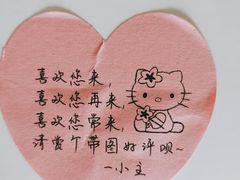 喜欢您来，
喜欢您再来，
喜欢您常来，
清赏个带图好评呗~
一小主